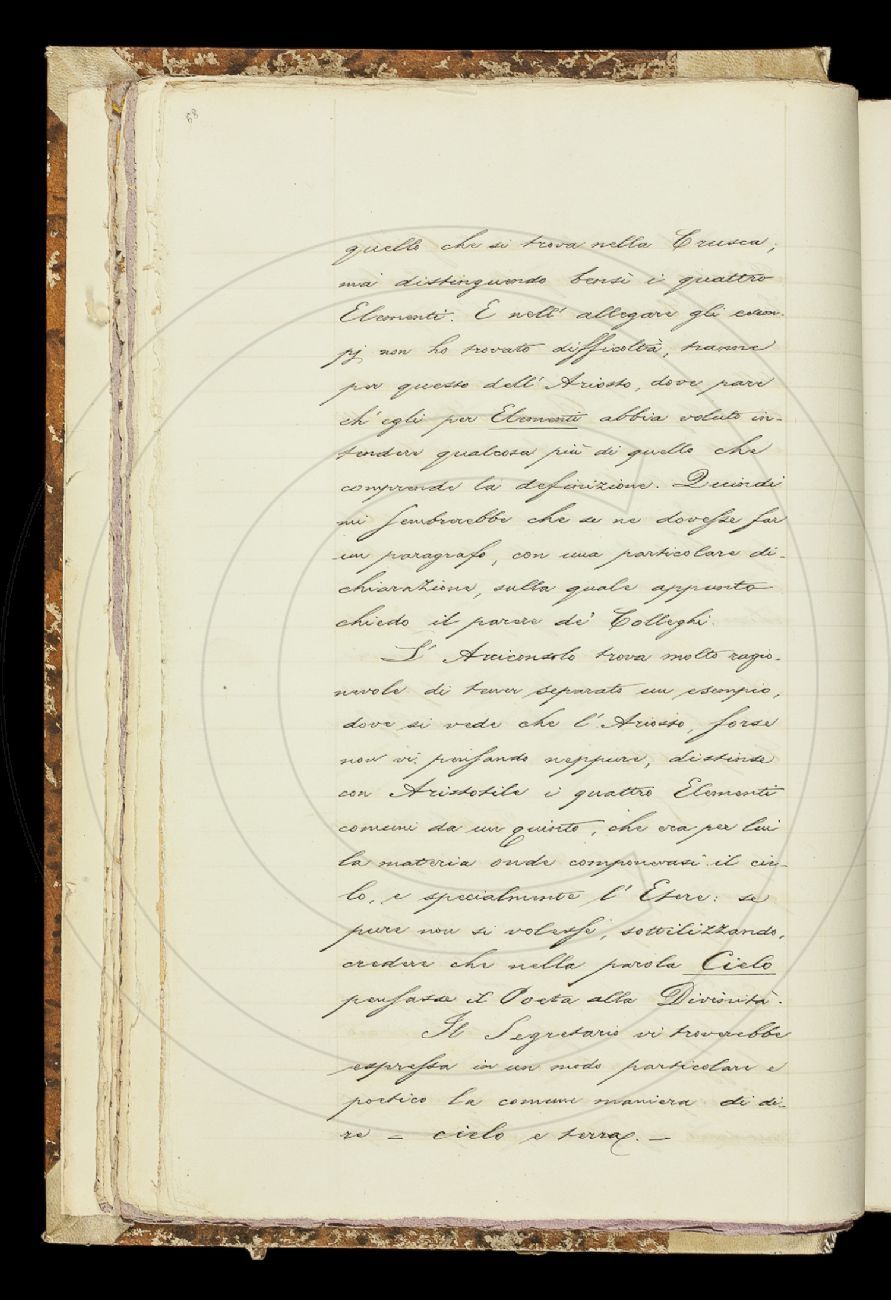 68
quello che si trova nella Crusca;
ma distinguendo bensì i quattro
Elementi. E nell' allegare gli esem-
pj non ho trovato difficoltà, tranne
per questo dell' Ariosto, dove pare
ch' egli per Elementi abbia voluto in-
tendere qualcosa più di quello che
comprende la definizione. Quindi
mi sembrerebbe che se ne dovesse far
un paragrafo, con una particolare di-
chiarazione, sulla quale appunto
chiedo il parere de' Colleghi.
L' Arciconsolo trova molto ragio-
nevole di tener separato un esempio,
dove si vede che l' Ariosto, forse
non vi pensando neppure, distinse
con Aristotile i quattro Elementi
comuni da un quinto, che era per lui
la materia onde componevasi il cie-
lo, e specialmente l' Etere: se
pure non si volesse, sottilizzando,
credere che nella parola Cielo
pensasse il Poeta alla Divinità.
Il Segretario vi troverebbe
espressa in un modo particolare e
poetico la comune maniera di di-
re = cielo e terra. —